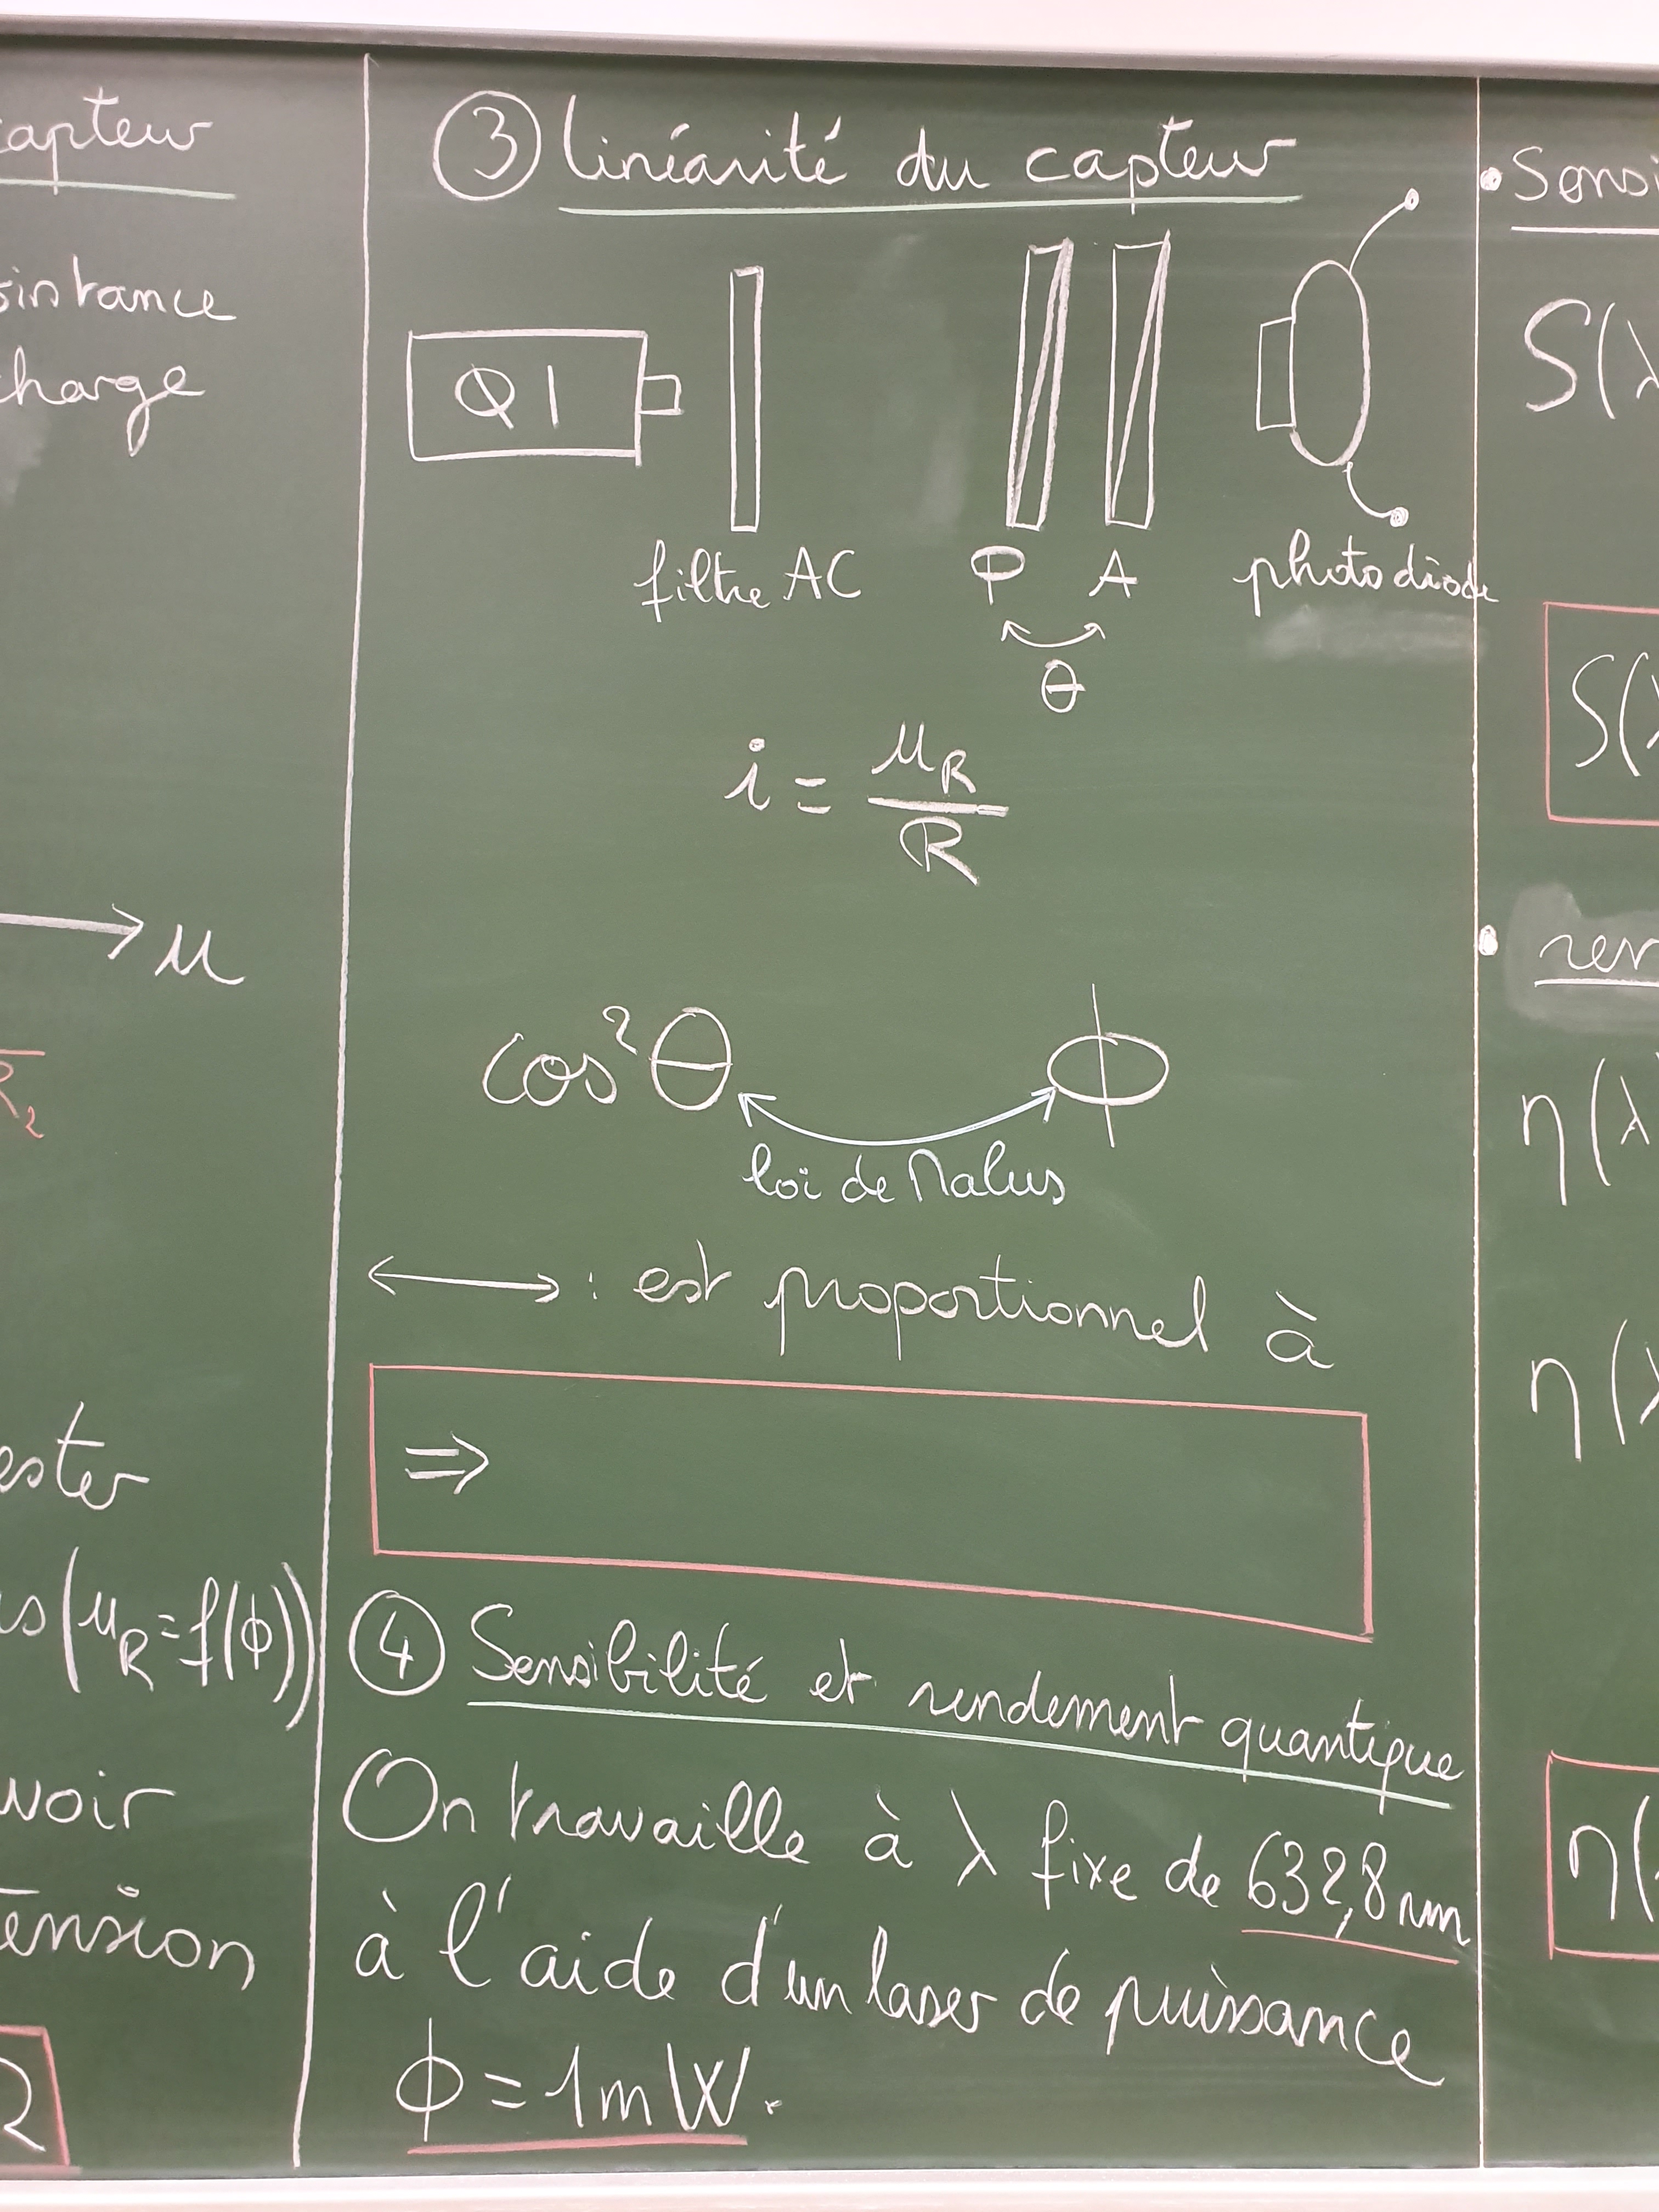 capteur
sistance
charge
→ u
R₂
ester
(u_R = f(ϕ))
voir
tension
R
③ linéarité du capteur
QI
filtre AC P A photodiode
θ
i = u_R / R
cos²θ ϕ
loi de Malus
⟷ : est proportionnel à
⇒
④ Sensibilité et rendement quantique
On travaille à λ fixe de 632,8 nm
à l'aide d'un laser de puissance
ϕ = 1 mW.
• Sensi
S(λ
S(λ
• ren
η(λ
η(λ
η(